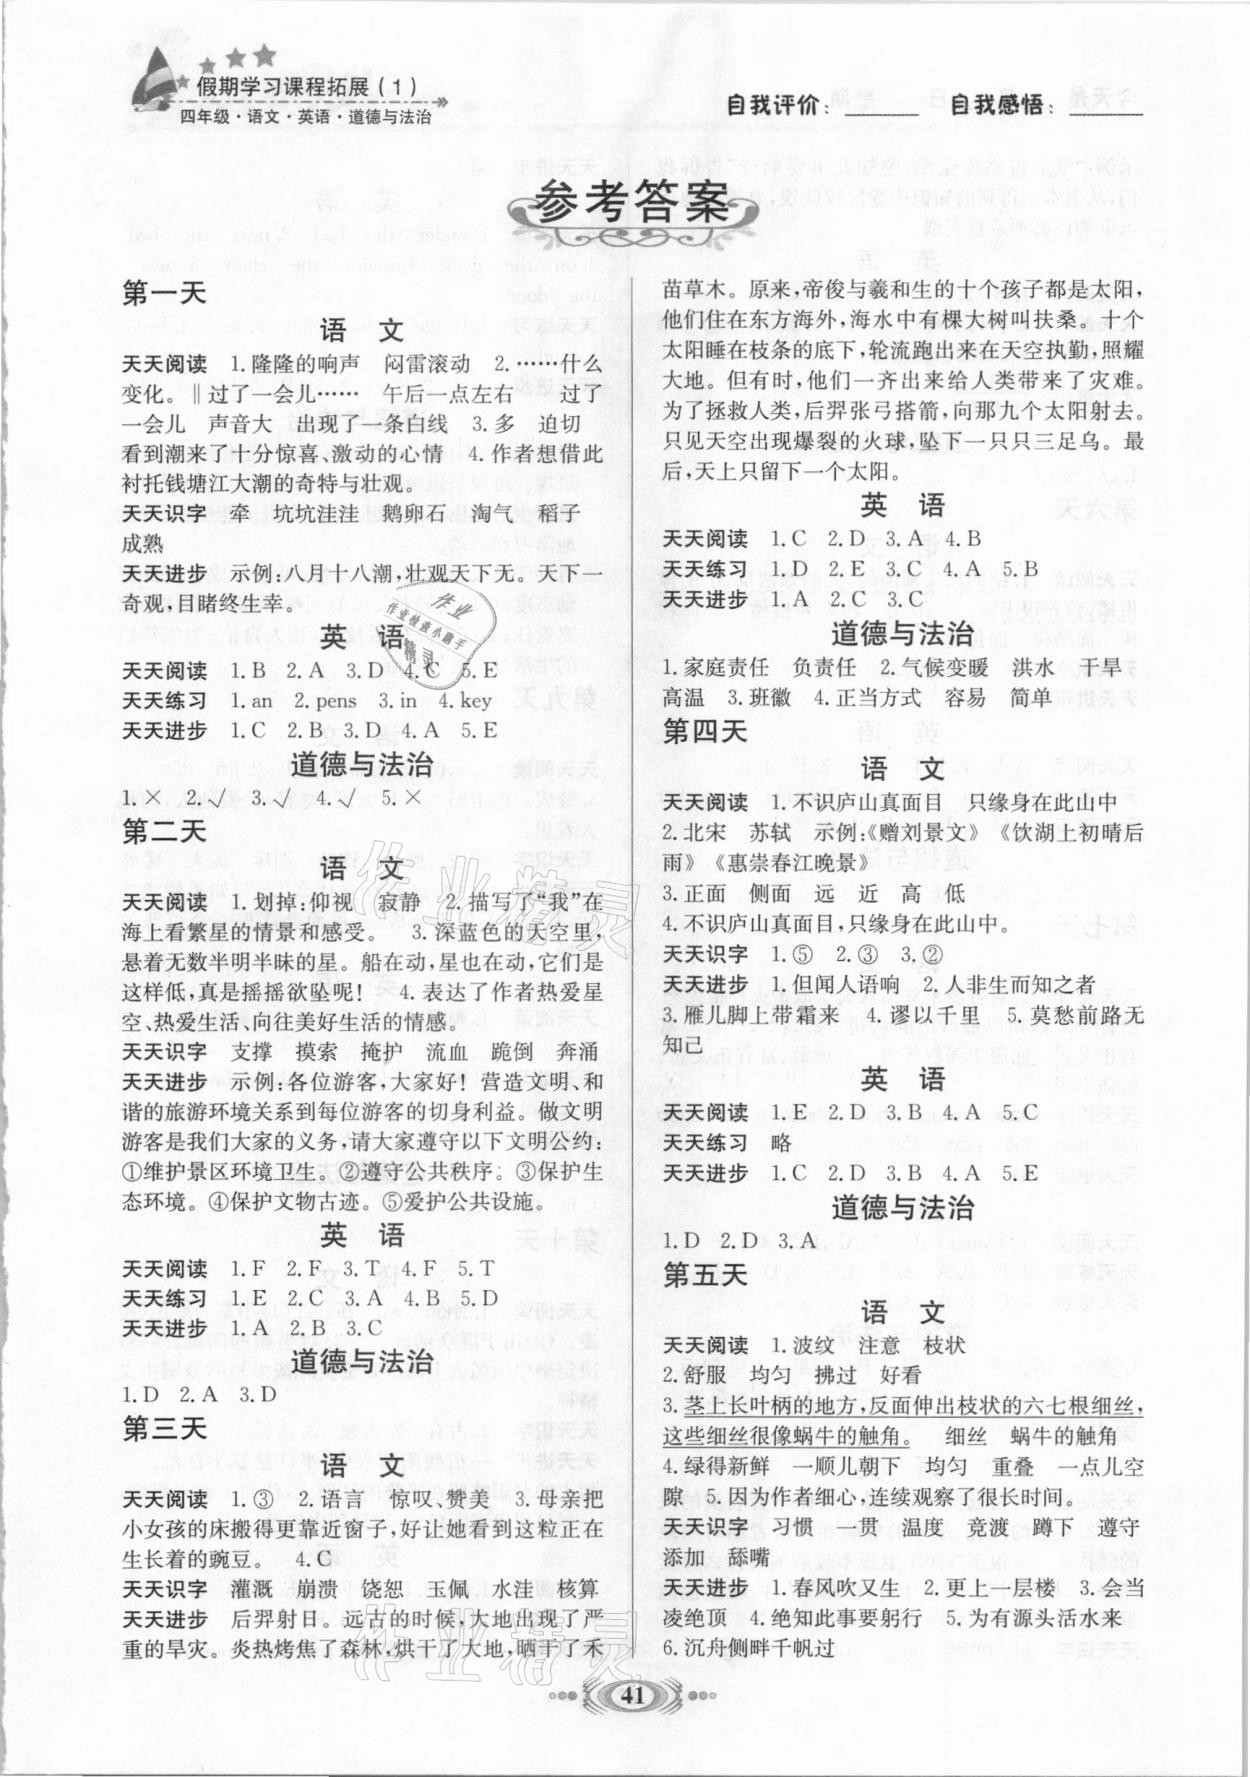 假期学习课程拓展(1)
四年级·语文·英语·道德与法治
自我评价:______ 自我感悟:______
参考答案
第一天
语 文
天天阅读 1.隆隆的响声 闷雷滚动 2.……什么
变化。‖过了一会儿…… 午后一点左右 过了
一会儿 声音大 出现了一条白线 3.多 迫切
看到潮来了十分惊喜、激动的心情 4.作者想借此
衬托钱塘江大潮的奇特与壮观。
天天识字 牵 坑坑洼洼 鹅卵石 淘气 稻子
成熟
天天进步 示例:八月十八潮,壮观天下无。天下
奇观,目睹终生幸。
英 语
天天阅读 1.B 2.A 3.D 4.C 5.E
天天练习 1.an 2.pens 3.in 4.key
天天进步 1.C 2.B 3.D 4.A 5.E
道德与法治
1.× 2.√ 3.√ 4.√ 5.×
第二天
语 文
天天阅读 1.划掉:仰视 寂静 2.描写了“我”在
海上看繁星的情景和感受。 3.深蓝色的天空里,
悬着无数半明半昧的星。船在动,星也在动,它们是
这样低,真是摇摇欲坠呢! 4.表达了作者热爱星
空、热爱生活、向往美好生活的情感。
天天识字 支撑 摸索 掩护 流血 跪倒 奔涌
天天进步 示例:各位游客,大家好! 营造文明、和
谐的旅游环境关系到每位游客的切身利益。做文明
游客是我们大家的义务,请大家遵守以下文明公约:
①维护景区环境卫生。②遵守公共秩序。③保护生
态环境。④保护文物古迹。⑤爱护公共设施。
英 语
天天阅读 1.F 2.F 3.T 4.F 5.T
天天练习 1.E 2.C 3.A 4.B 5.D
天天进步 1.A 2.B 3.C
道德与法治
1.D 2.A 3.D
第三天
语 文
天天阅读 1.③ 2.语言 惊叹、赞美 3.母亲把
小女孩的床搬得更靠近窗子,好让她看到这粒正在
生长着的豌豆。 4.C
天天识字 灌溉 崩溃 饶恕 玉佩 水洼 核算
天天进步 后羿射日。远古的时候,大地出现了严
重的旱灾。炎热烤焦了森林,烘干了大地,晒干了禾
苗草木。原来,帝俊与羲和生的十个孩子都是太阳,
他们住在东方海外,海水中有棵大树叫扶桑。十个
太阳睡在枝条的底下,轮流跑出来在天空执勤,照耀
大地。但有时,他们一齐出来给人类带来了灾难。
为了拯救人类,后羿张弓搭箭,向那九个太阳射去。
只见天空出现爆裂的火球,坠下一只只三足乌。最
后,天上只留下一个太阳。
英 语
天天阅读 1.C 2.D 3.A 4.B
天天练习 1.D 2.E 3.C 4.A 5.B
天天进步 1.A 2.C 3.C
道德与法治
1.家庭责任 负责任 2.气候变暖 洪水 干旱
高温 3.班徽 4.正当方式 容易 简单
第四天
语 文
天天阅读 1.不识庐山真面目 只缘身在此山中
2.北宋 苏轼 示例:《赠刘景文》《饮湖上初晴后
雨》《惠崇春江晚景》
3.正面 侧面 远 近 高 低
4.不识庐山真面目,只缘身在此山中。
天天识字 1.⑤ 2.③ 3.②
天天进步 1.但闻人语响 2.人非生而知之者
3.雁儿脚上带霜来 4.谬以千里 5.莫愁前路无
知己
英 语
天天阅读 1.E 2.D 3.B 4.A 5.C
天天练习 略
天天进步 1.C 2.D 3.B 4.A 5.E
道德与法治
1.D 2.D 3.A
第五天
语 文
天天阅读 1.波纹 注意 枝状
2.舒服 均匀 拂过 好看
3.茎上长叶柄的地方,反面伸出枝状的六七根细丝,
这些细丝很像蜗牛的触角。 细丝 蜗牛的触角
4.绿得新鲜 一顺儿朝下 均匀 重叠 一点儿空
隙 5.因为作者细心,连续观察了很长时间。
天天识字 习惯 一贯 温度 竞渡 蹲下 遵守
添加 舔嘴
天天进步 1.春风吹又生 2.更上一层楼 3.会当
凌绝顶 4.绝知此事要躬行 5.为有源头活水来
6.沉舟侧畔千帆过
41
作业精灵
作业精灵
作业
作业检查小助手
精灵